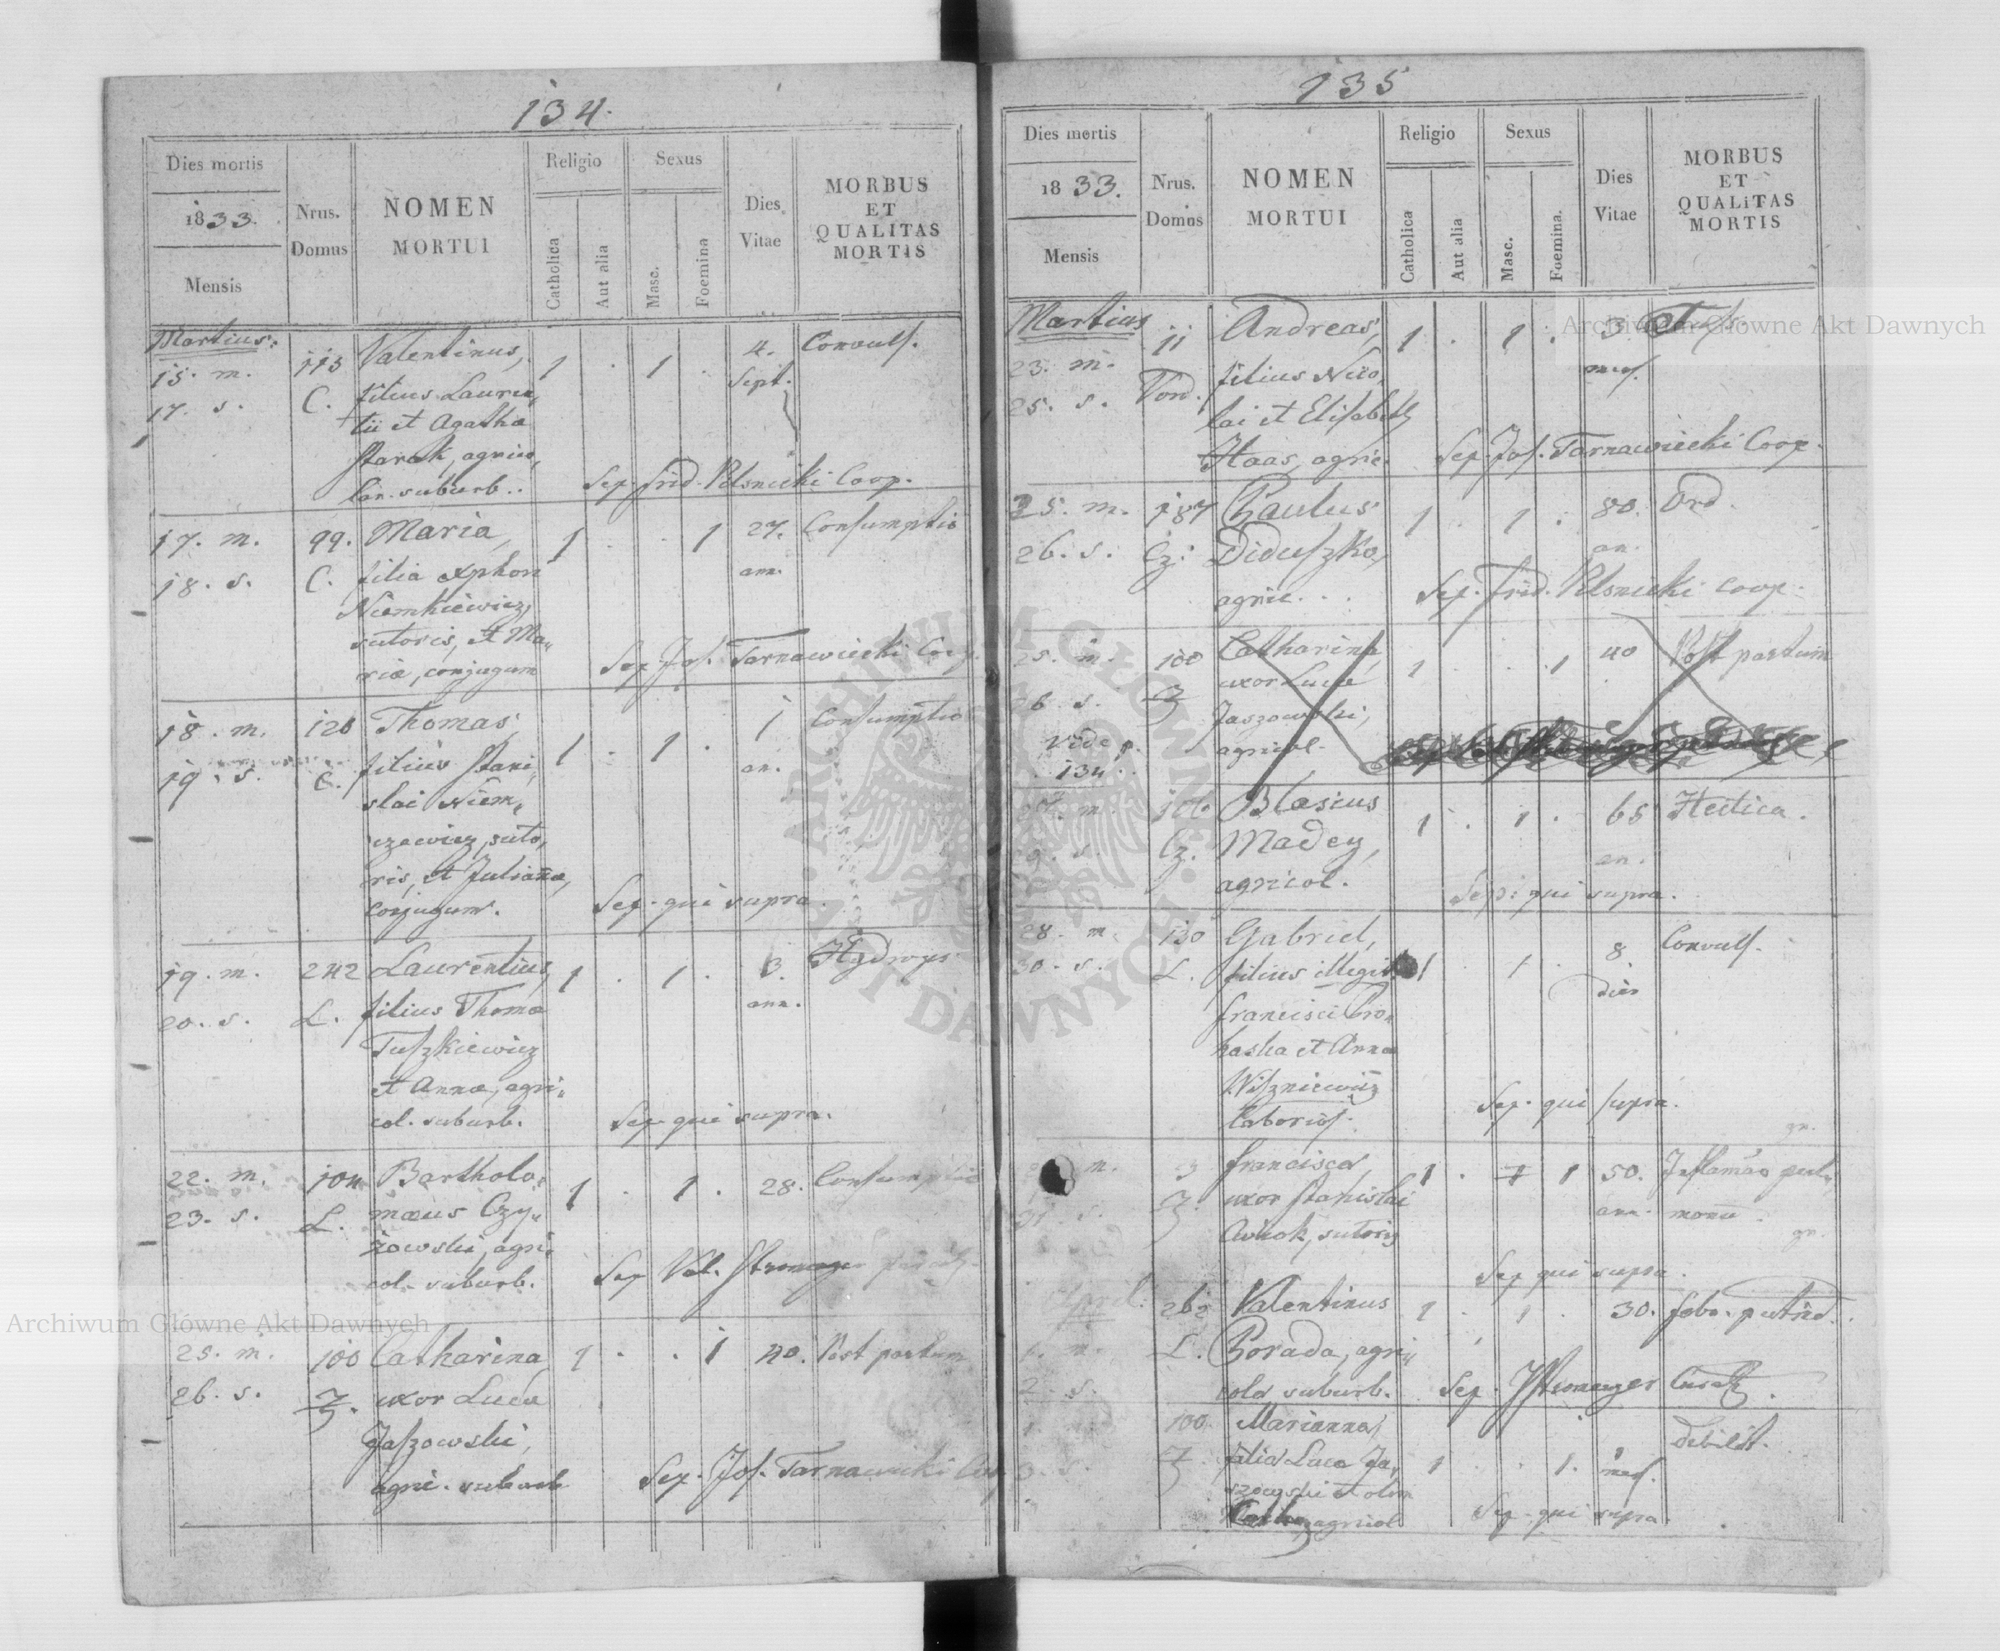 134.
Dies mortis
1833.
Mensis
Nrus.
Domus
NOMEN
MORTUI
Religio
Catholica
Aut alia
Sexus
Masc.
Foemina
Dies
Vitae
MORBUS
ET
QUALITAS
MORTIS
Martius.
15. m.
17. s.
113
C.
Valentinus,
filius Lauren,
tii et Agatha
Starak, agrico,
lar. suburb..
1 . 1 .
4.
Sept.
Convuls.
Sep. Frid. Pelsnicki Coop.
17. m.
18. s.
99.
C.
Maria,
filia
Niemkiewicz,
sutoris, et Ma,,
riæ, conjugum
1 . . 1
27.
ann.
Consumptio
Sep Jos. Tarnawiecki Coop.
18. m.
19. s.
120
C.
Thomas,
filius Stani,
slai Niem,
czewicz, suto,
ris, et Julianæ,
conjugum.
1 . 1 .
1
an.
Consumptio
Sep. qui supra.
19. m.
20. s.
242
L.
Laurentius,
filius Thomæ
Tuszkiewicz
et Annæ, agri,
col. suburb.
1 . 1 .
3.
ann.
Hydrops
Sep. qui supra.
22. m.
23. s.
104
L.
Bartholo,
mæus Czy,,
żowski, agri,
col. suburb.
1 . 1 .
28.
Consumptio
Sep Val. Stromenger
25. m.
26. s.
100
Z.
Catharina
uxor Lucæ
Jaszowski,
agri. suburb
1 . . 1
40.
Post partum
Sep. Jos. Tarnawiecki Coop
135
Dies mortis
1833.
Mensis
Nrus.
Domus
NOMEN
MORTUI
Religio
Catholica
Aut alia
Sexus
Masc.
Foemina.
Dies
Vitae
MORBUS
ET
QUALITAS
MORTIS
Martius
23. m.
25. s.
11
Andreas,
filius Nico,
lai et Elisabeth
Haas, agric.
1 . 1 .
3.
mes.
Sep Jos. Tarnawiecki Coop.
25. m.
26. s.
187
Cz.
Paulus
Diduszko,
agric. . .
1 . 1 .
80.
an.
Ord.
Sep. Frid. Pelsnicki Coop.
25. m.
26. s.
Vide p.
134.
100
Z
Catharina,
uxor Lucæ
Jaszowski,
agricol.
1 . . 1
40
Post partum
m.
s.
106
Cz.
Blasius
Madey,
agricol.
1 . 1 .
65
an.
Hectica.
Sep. qui supra.
28. m.
30. s.
130
L.
Gabriel,
filius illegit
Francisci Pro,
haska et Annæ
Wiszniewicz
Laborios.
1 . 1 .
8.
dies
Convuls.
Sep. qui supra.
m.
31. s.
3
Z.
Francisca,
uxor Stanislai
sutoris
1 . 1 1
50.
ann.
Inflamao pul,
monu.
Sep qui supra.
April.
1. m.
2. s.
262
L.
Valentinus
Porada, agri,,
cola suburb.
1 . 1 .
30.
febr. putrid.
Sep. Stromenger Curat.
1. m.
3. s.
100.
Z
Marianna,
filia Lucæ Ja,
szowski et olim
agricol.
1 . . 1.
mes.
debilit.
Sep. qui supra
Archiwum Główne Akt Dawnych
Archiwum Główne Akt Dawnych
ARCHIWUM GŁÓWNE · AKT DAWNYCH ·